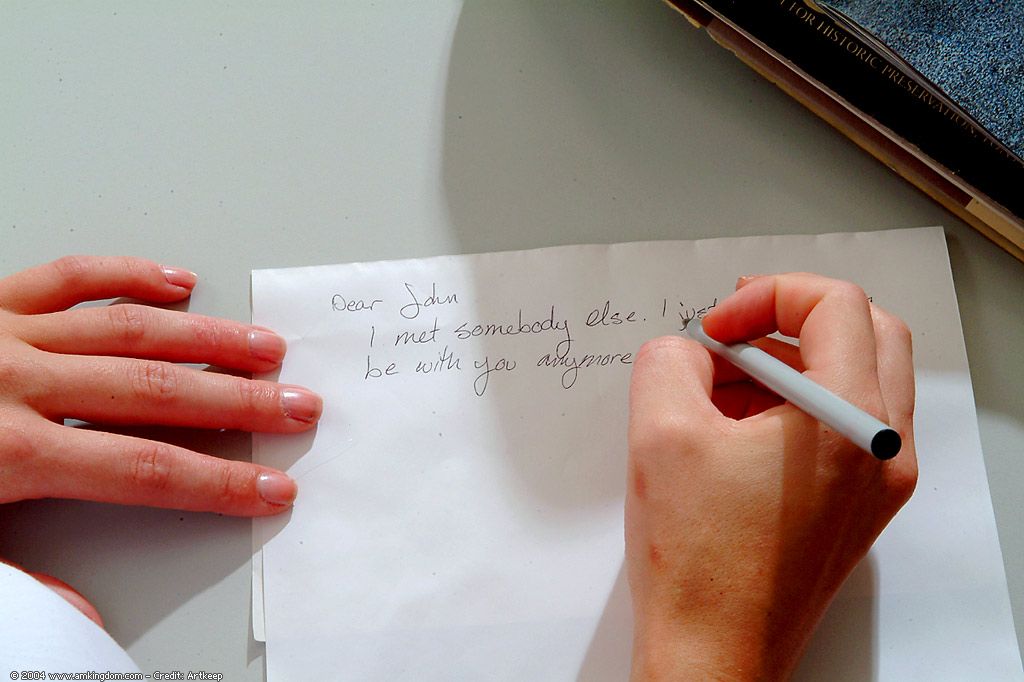 FOR HISTORIC PRESERVATION
Dear John
I met somebody else. I just
be with you anymore
© 2004 www.amkingdom.com - Credit: Artkeep